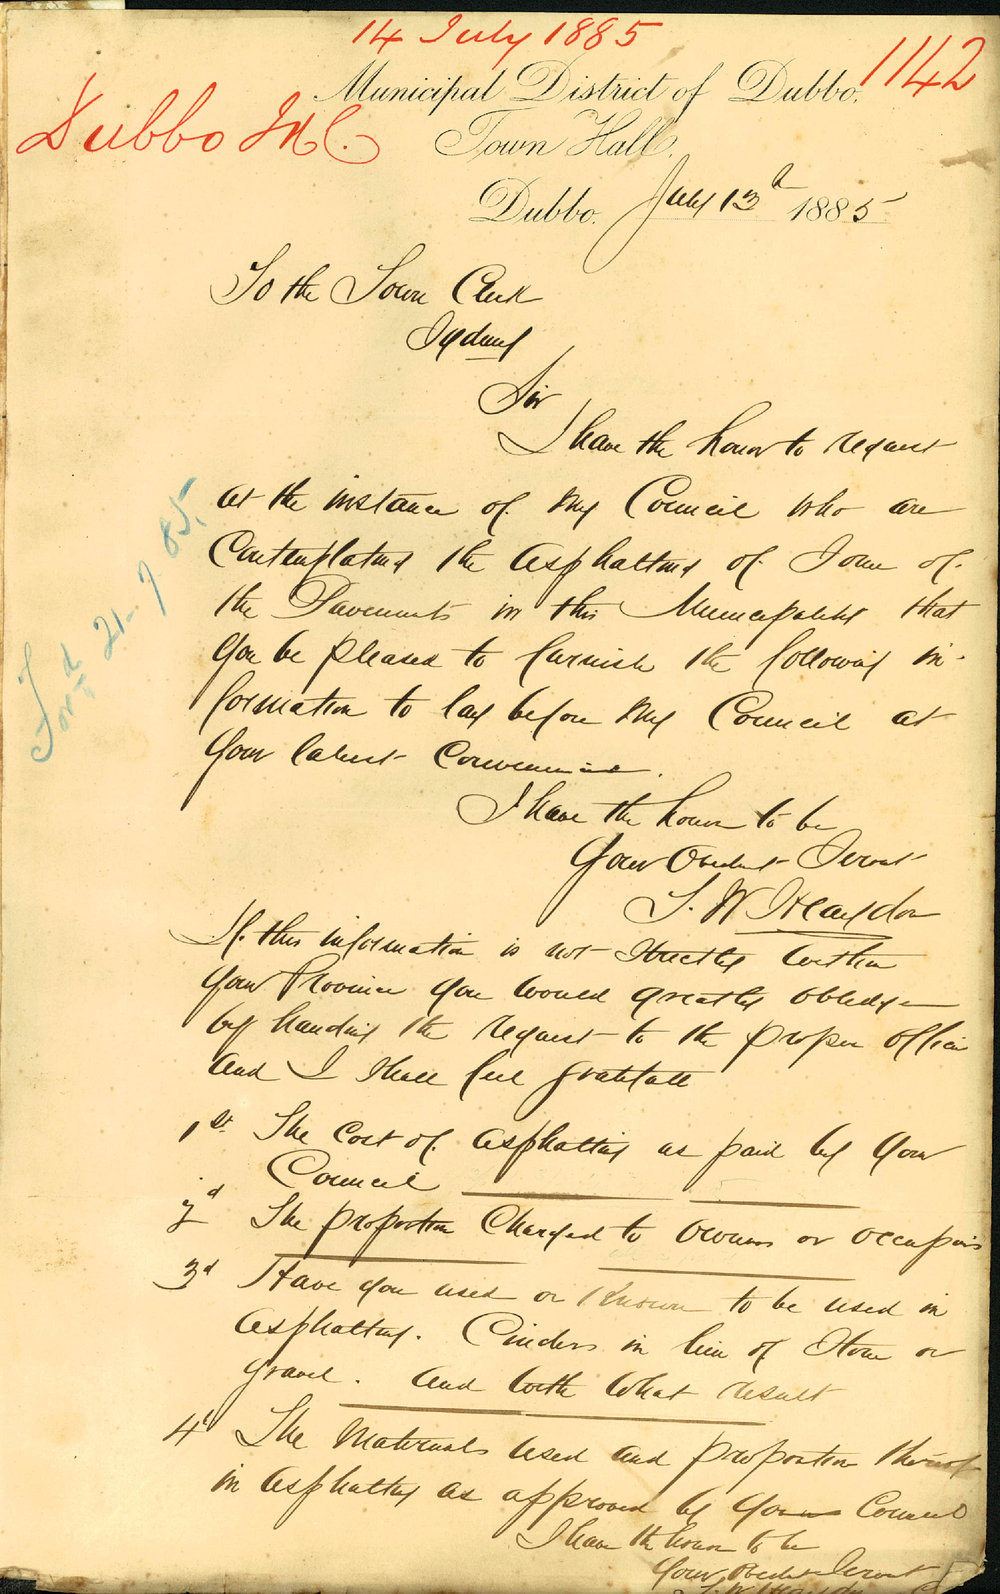 14 July 1885
1142
Municipal District of Dubbo.
Dubbo M.C.
Town Hall.
Dubbo. July 13th 1885
To the Town Clerk
Sydney
Sir
I have the honor to request
at the instance of my Council who are
Contemplating the asphalting of Some of
the Pavements in this Municipality that
you be pleased to furnish the following in-
formation to lay before my Council at
your earliest convenience.
I have the honor to be
Your Obedient Servant
W Heaydon
If this information is not strictly within
your Province you would greatly obledge
by handing the request to the proper officer
and I shall feel
1st The Cost of asphalting as paid by your
Council
2d The proportion Charged to owners or occupiers
3d Have you used or known to be used in
asphalting. Cinders in lieu of Stone or
gravel. and with what result
4th The Materials used and proportion thereof
in asphalting as approved by your Council
I have the honor to be
Your Obedient Servant
21-7 85